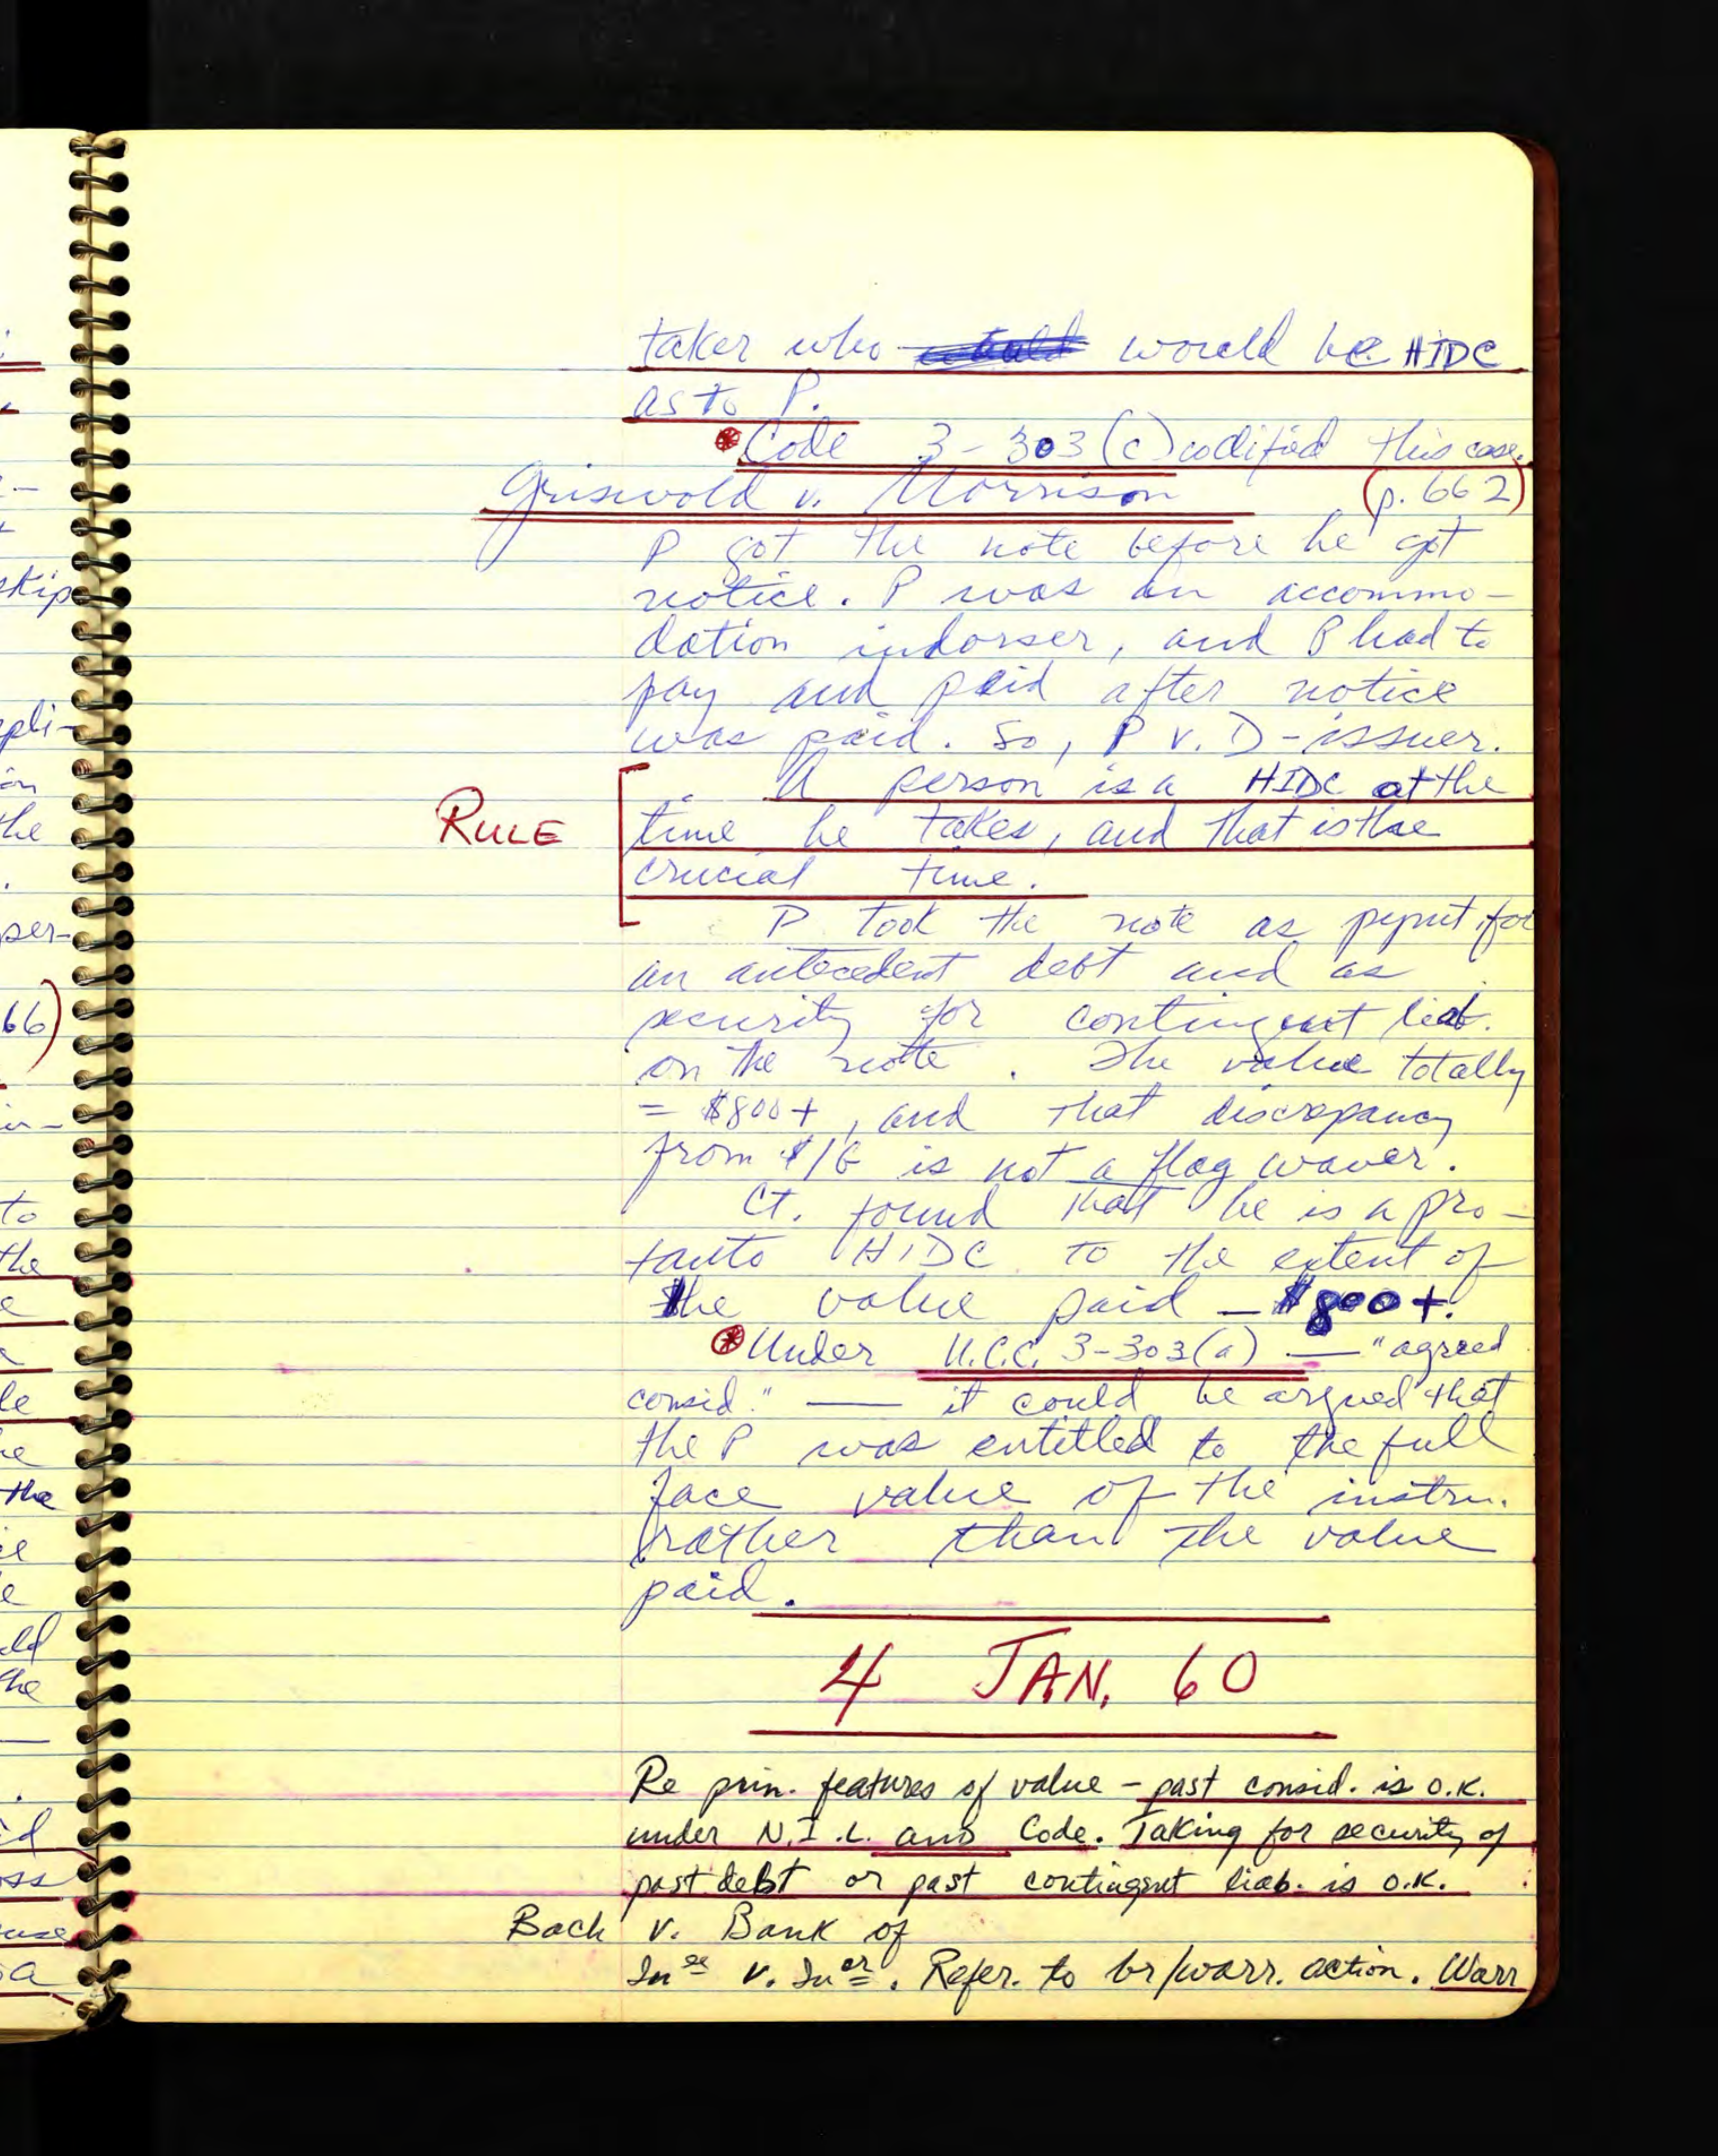 taker who would be HIDC
as to P.
Code 3-303(c) codified this case.
Griswold v. Morrison (p. 662)
P got the note before he got
notice. P was an accommo-
dation indorser, and P had to
pay and paid after notice
was paid. So, P v. D-issuer.
A person is a HIDC at the
RULE time he takes, and that is the
crucial time.
P took the note as pymt for
an antecedent debt and as
security for contingent liab.
on the note. The value totally
= $800+, and that discrepancy
from $1G is not a flag waver.
Ct. found that he is a pro-
tanto HIDC to the extent of
the value paid - $800+.
Under U.C.C. 3-303(a) — "agreed
consid." — it could be argued that
the P was entitled to the full
face value of the instru.
rather than the value
paid.
4 JAN. 60
Re prin. features of value - past consid. is o.k.
under N.I.L. and Code. Taking for security of
past debt or past contingent liab. is o.k.
Bach v. Bank of
In ee v. In er. Refer. to br/warr. action. Warr
skip
pli-
on
the
per-
66)
to
the
le
the
ld
the